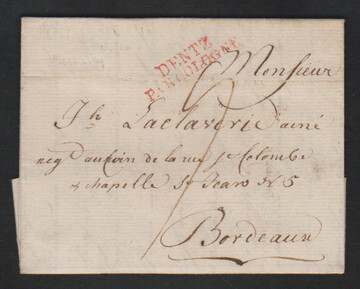 DEUTZ
PAR COLOGNE
Monsieur
Jh Laclaverie ainé
neg au coin de la rue Ste Colombe
& chapelle St Jean N 5
Bordeaux